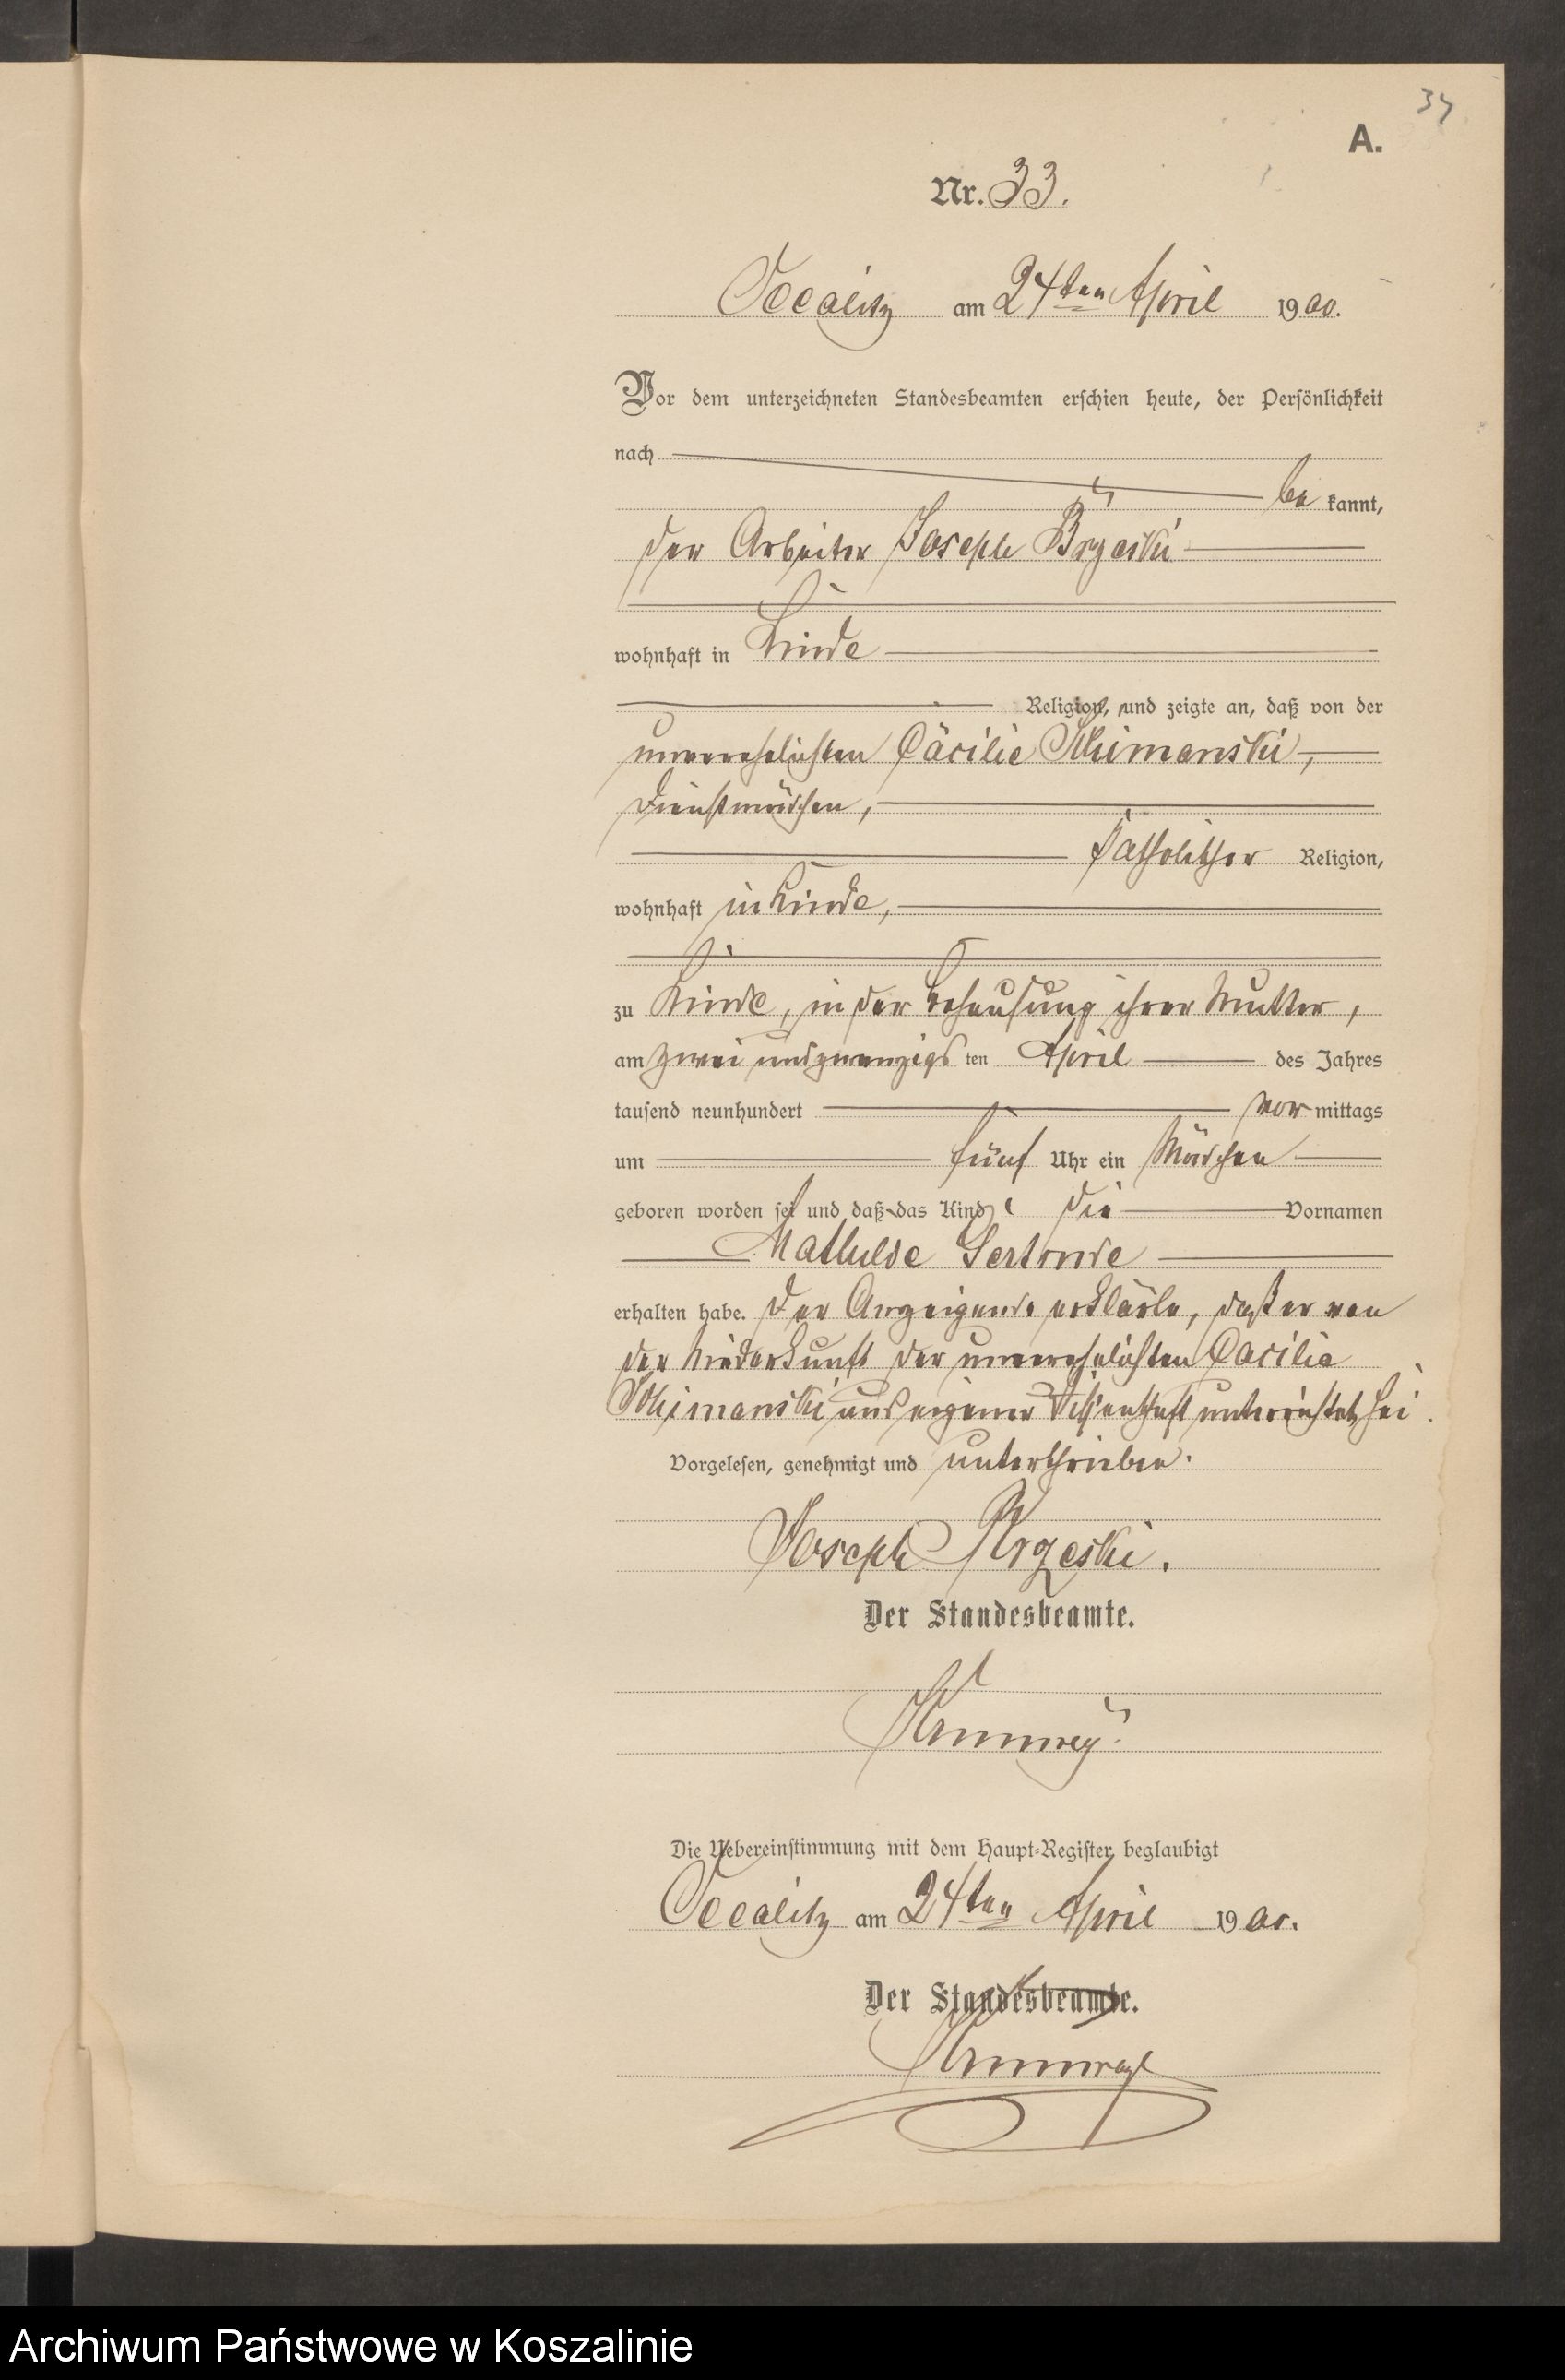 34
A.
Nr. 33.
Occalitz am 24ten April 1900.
Vor dem unterzeichneten Standesbeamten erschien heute, der Persönlichkeit
nach
be kannt,
der Arbeiter Joseph
wohnhaft in Linde
Religion, und zeigte an, daß von der
unverehelichten Cäcilie Schimanski,
Dienstmädchen,
katholischer Religion,
wohnhaft in Linde,
zu Linde, in der Behausung ihrer Mutter,
am zwei und zwanzigs ten April des Jahres
tausend neunhundert vor mittags
um fünf Uhr ein Mädchen
geboren worden sei und daß das Kind die Vornamen
Mathilde Gertrude
erhalten habe. Der Anzeigende erklärte, daß er von
der Niederkunft der unverehelichten Cacilia
Schimanski aus eigener Wissenschaft unterrichtet sei.
Vorgelesen, genehmigt und unterschrieben.
Joseph
Der Standesbeamte.
Die Uebereinstimmung mit dem Haupt-Register beglaubigt
Occalitz am 24ten April 1900.
Der Standesbeamte.
Archiwum Państwowe w Koszalinie